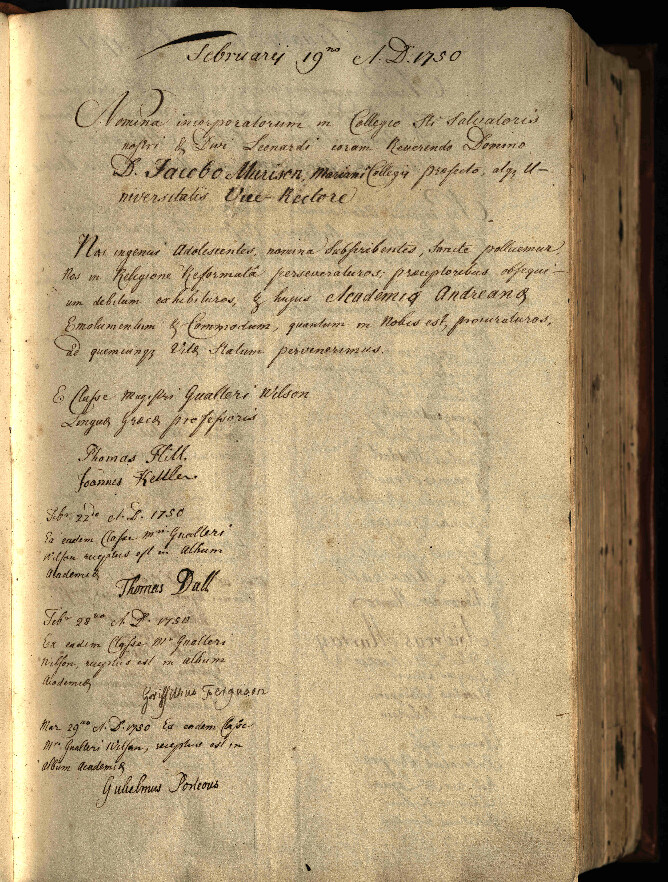 Februarij 19no A.D. 1750
Nomina incorporatorum in Collegio Sti Salvatoris
nostri & Divi Leonardi coram Reverendo Domino
D. Jacobo Murison, Mariani Collegii præfecto, atq; U-
niversitatis Vice-Rectore
Nos ingenui Adolescentes, nomina Subscribentes, Sancte pollicemur,
Nos in Religione Reformatâ perseveraturos; præceptoribus obsequi-
um debitum exhibituros, & hujus Academiæ Andreanæ
Emolumentum & Commodum, quantum in Nobis est, procuraturos,
ad quemcunq; Vitæ Statum pervenerimus.
E Classe Magistri Gualteri Wilson
Linguæ Græcæ professoris
Thomas Hill.
Joannes Kettler
Febr. 22do A.D. 1750
Ex eadem Classe Mri Gualteri
Wilson receptus est in Album
Academiæ
Thomas Dall
Febr 28vo A.D. 1750
Ex eadem Classe Mri Gualteri
Wilson, receptus est in album
Academiæ
Griffithus Ferguson
Mar. 29no A.D. 1750 Ex eadem Classe
Mri Gualteri Wilson, receptus est in
album Academiæ
Gulielmus Porteous